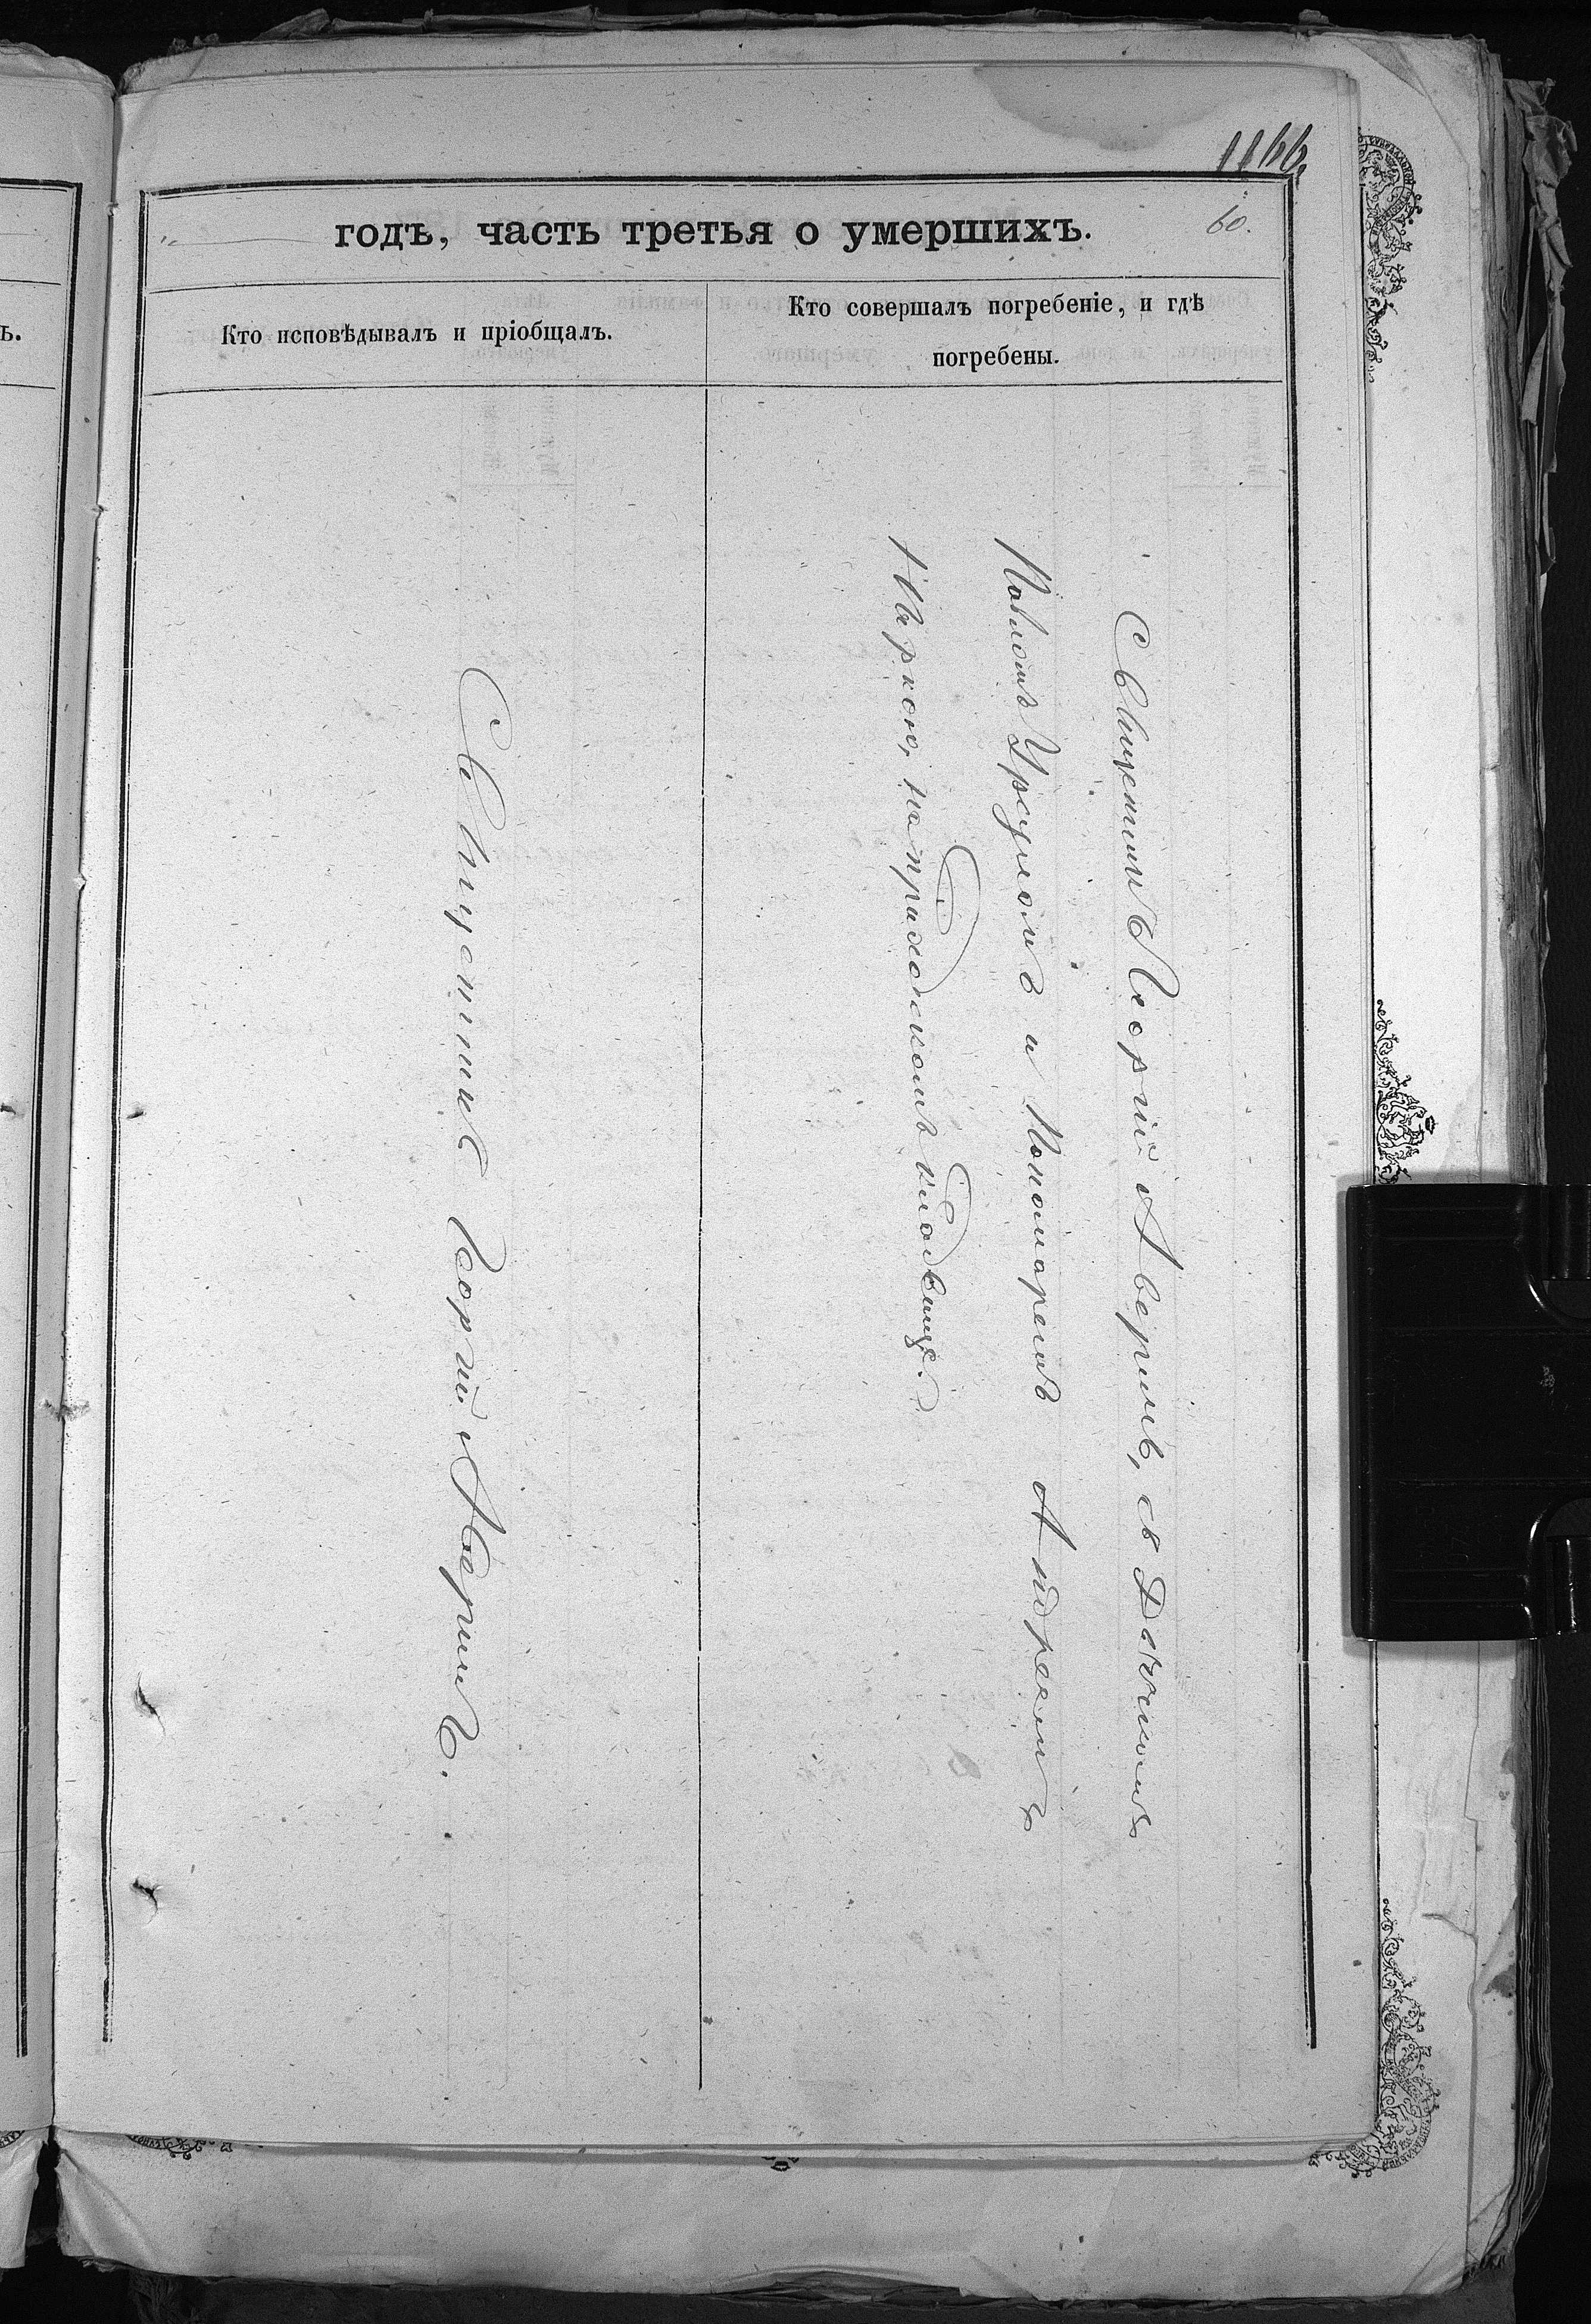 1166.
60.
годъ, часть третья о умершихъ.
Кто исповѣдывалъ и пріобщалъ.
Кто совершалъ погребеніе, и гдѣ
погребены.
Священникъ Георгій Аверинъ.
Священникъ Георгій Аверинъ, съ Дьячкомъ
Павломъ Урсуломъ и Пономаремъ Андреемъ
на приходскомъ кладбищѣ.